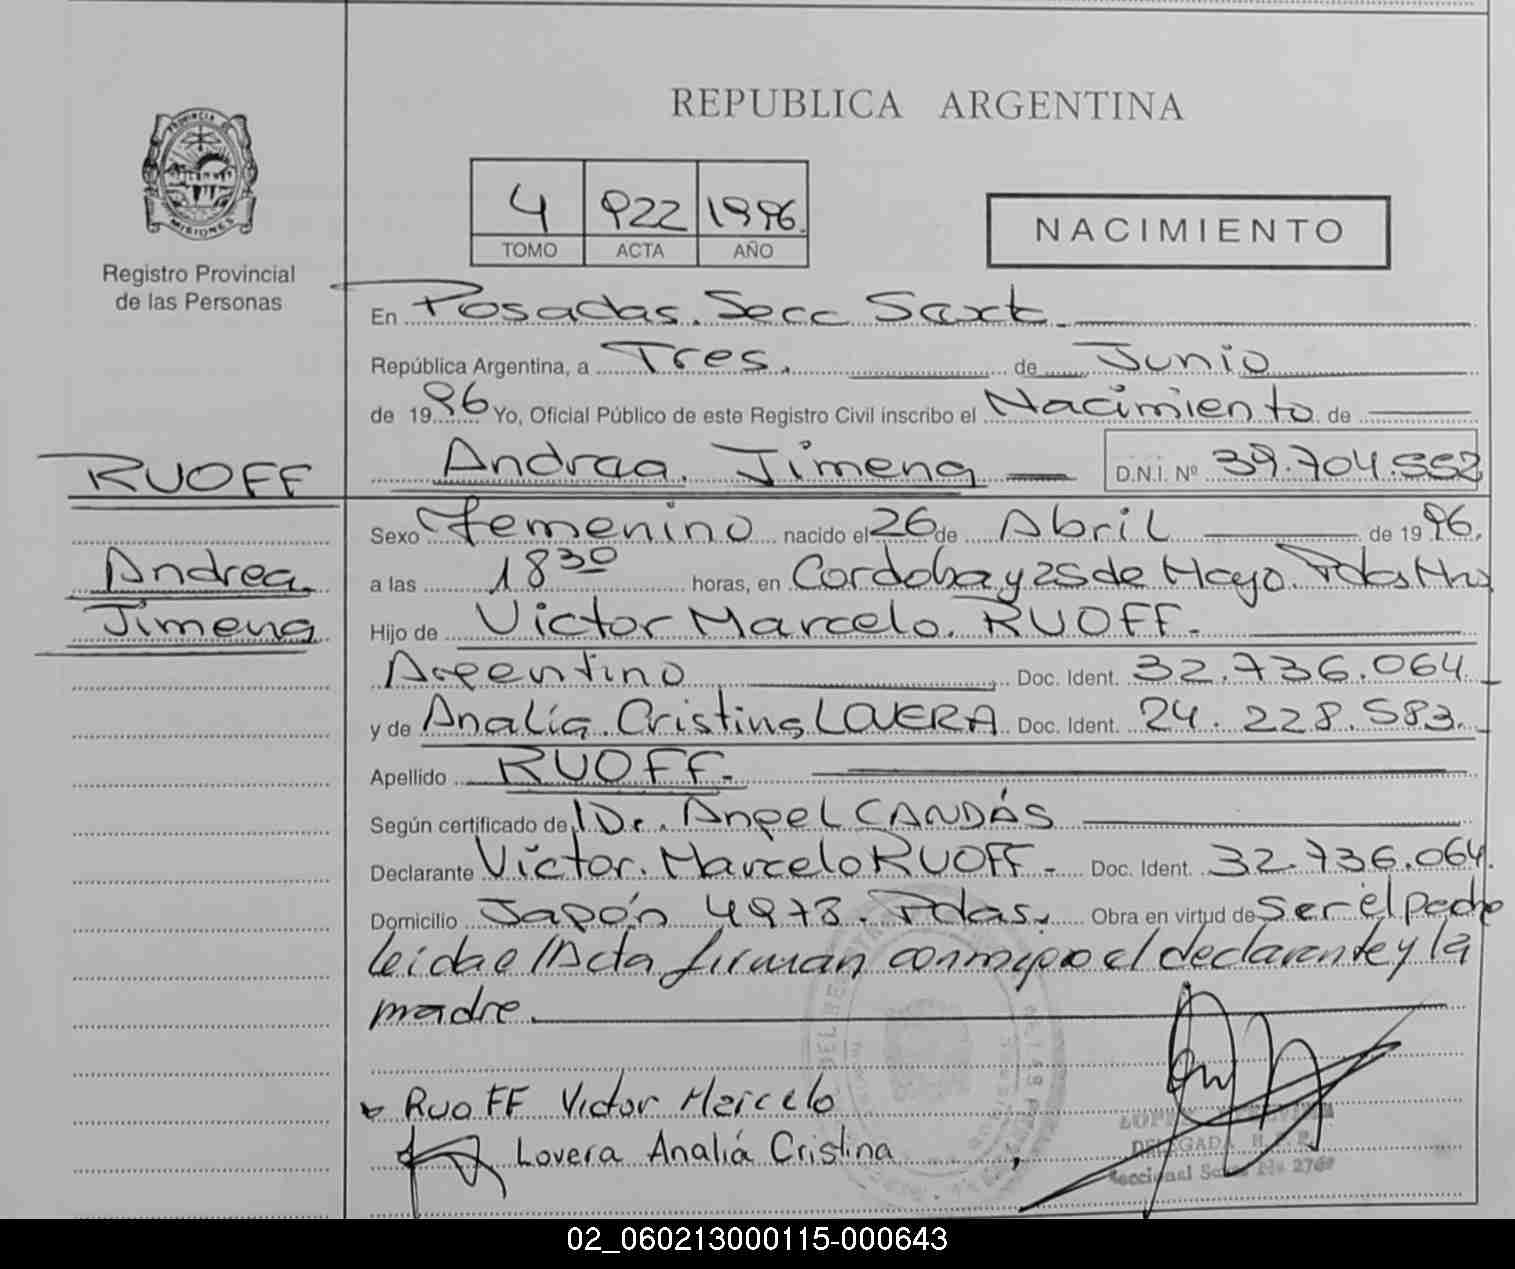 PROVINCIA DE
MISIONES
Registro Provincial
de las Personas
REPUBLICA ARGENTINA
4 922 1996.
TOMO ACTA AÑO
NACIMIENTO
En Posadas. Secc Saxt.
República Argentina, a Tres. de Junio
de 1996 Yo, Oficial Público de este Registro Civil inscribo el Nacimiento de
RUOFF
Andrea. Jimena D.N.I. Nº 39.704.552
Andrea.
Jimena
Sexo Femenino nacido el 26 de Abril de 1996.
a las 18 30 horas, en Cordoba y 25 de Mayo. Pdas Mns
Hijo de Victor Marcelo. RUOFF.
Argentino Doc. Ident. 32.736.064.
y de Analía. Cristina LOVERA Doc. Ident. 24.228.583.
Apellido RUOFF.
Según certificado del Dr. Angel CANDÁS
Declarante Victor. Marcelo RUOFF - Doc. Ident. 32.736.064.
Domicilio Japón 4973. Pdas. Obra en virtud de Ser el padre
leida el Acta firman conmigo el declarante y la
madre.
RuoFF Victor Marcelo
Lovera Analiá Cristina
DELEGADA R. P. P.